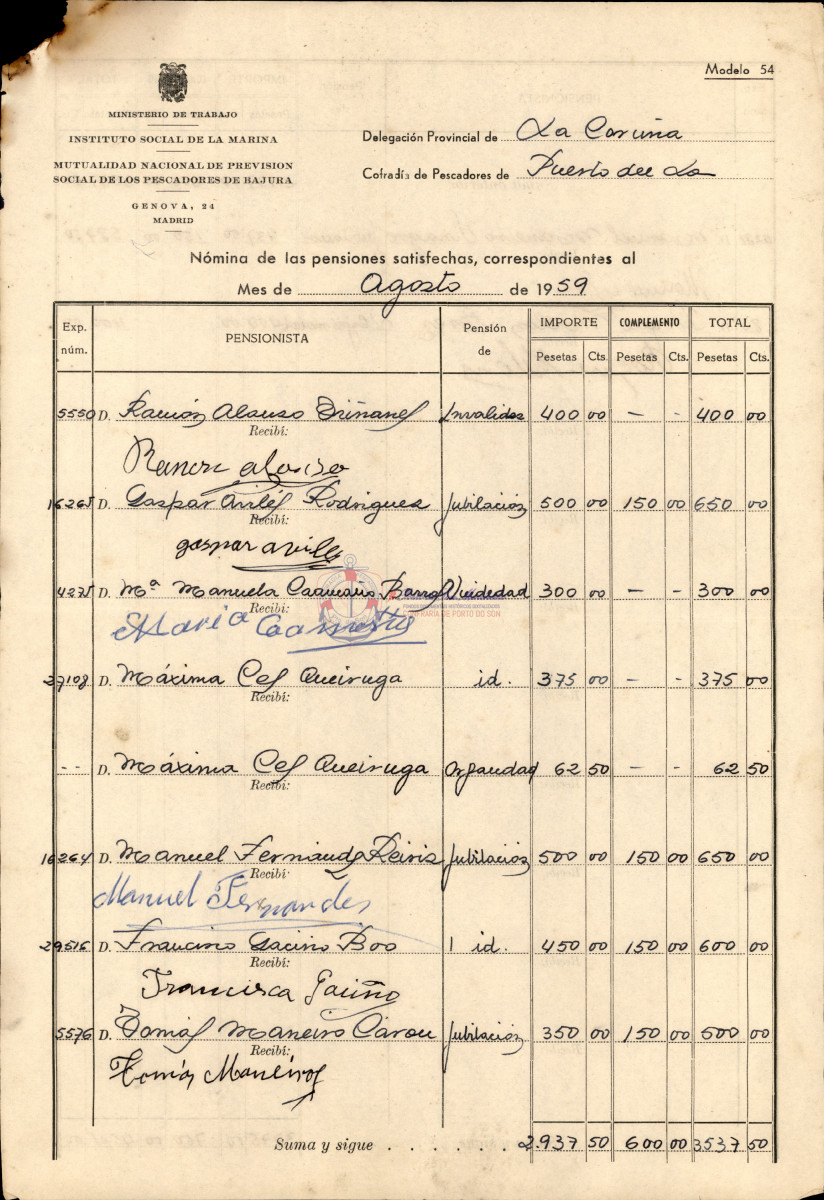 Modelo 54
MINISTERIO DE TRABAJO
INSTITUTO SOCIAL DE LA MARINA
MUTUALIDAD NACIONAL DE PREVISION
SOCIAL DE LOS PESCADORES DE BAJURA
GENOVA, 24
MADRID
Delegación Provincial de La Coruña
Cofradía de Pescadores de Puerto del
Nómina de las pensiones satisfechas, correspondientes al
Mes de Agosto de 1959
Exp. núm. PENSIONISTA Pensión de IMPORTE COMPLEMENTO TOTAL
Pesetas Cts. Pesetas Cts. Pesetas Cts.
5550 D. Ramón Alonso Triñanes Invalidez 400 00 — - 400 00
Recibí:
Ramon alonso
16265 D. Gaspar Avilés Rodriguez Jubilación 500 00 150 00 650 00
Recibí:
gaspar aviles
4275 D. Mª Manuela Caamaño Viudedad 300 00 — - 300 00
Recibí:
COFRARIA DE PORTO DO SON
Maria Caamaño
27108 D. Máxima Ces Queiruga id. 375 00 — - 375 00
Recibí:
-- D. Máxima Ces Queiruga Orfandad 62 50 — - 62 50
Recibí:
16264 D. Manuel Fernández Reiris Jubilación 500 00 150 00 650 00
Recibí:
Manuel Fernandes
29516 D. Francisco Gaciño Boo id. 450 00 150 00 600 00
Recibí:
Francisca Gaciño
5576 D. Tomás Maneiro Carou Jubilación 350 00 150 00 500 00
Recibí:
Tomás Maneiro
Suma y sigue . . . . . . 2.937 50 600 00 3537 50